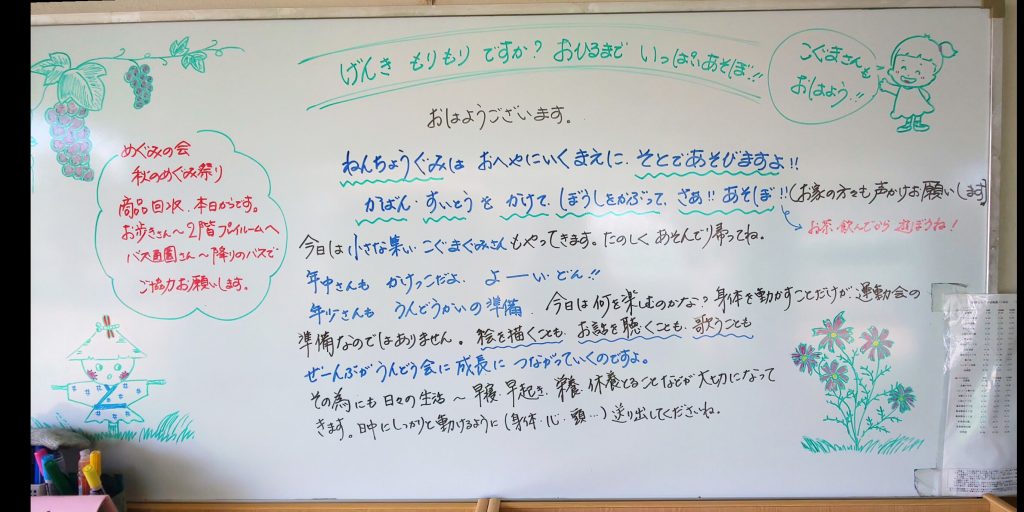 げんき もりもり ですか? おひるまで いっぱいあそぼ!!
こぐまさんも
おはよう!!
おはようございます。
めぐみの会
秋のめぐみ祭り
商品回収、本日からです。
お歩きさん～2階プレイルームへ
バス通園さん～降りのバスで
ご協力お願いします。
ねんちょうぐみは おへやにいくまえに、そとであそびますよ!!
かばん・すいとうを かけて、ぼうしをかぶって、さあ!! あそぼ!!(お家の方も声かけお願いします)
お茶、飲んでから 遊ぼうね!
今日は小さな集い・こぐまぐみさんもやってきます。たのしく あそんでり帰ってね。
年中さんも かけっこだよ、よーい・どん!!
年少さんも うんどうかいの準備、今日は何を楽しむのかな? 身体を動かすことだけが、運動会の
準備なのではありません。絵を描くことも、お話を聴くことも、歌うことも
ぜーんぶが うんどう会に 成長に つながっていくのですよ。
その為にも 日々の生活～早寝・早起き・栄養、休養とることなどが大切になって
きます。日中にしっかりと動けるように(身体・心・頭…)送り出してくださいね。